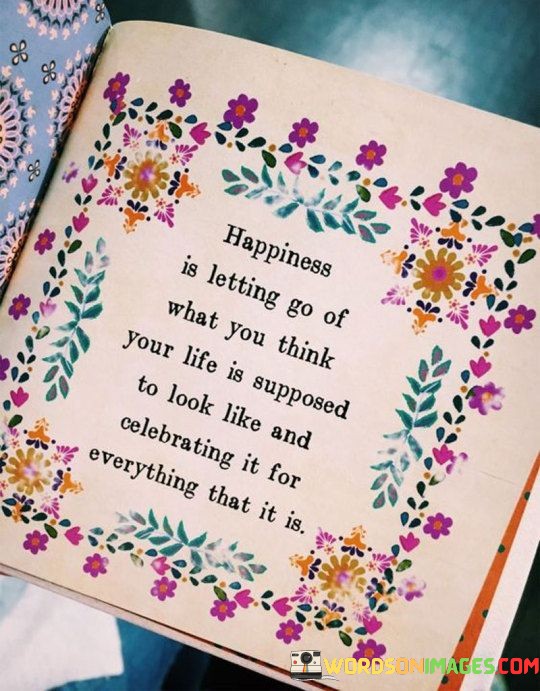 Happiness
is letting go of
what you think
your life is supposed
to look like and
celebrating it for
everything that it is.
WORDSONIMAGES.COM